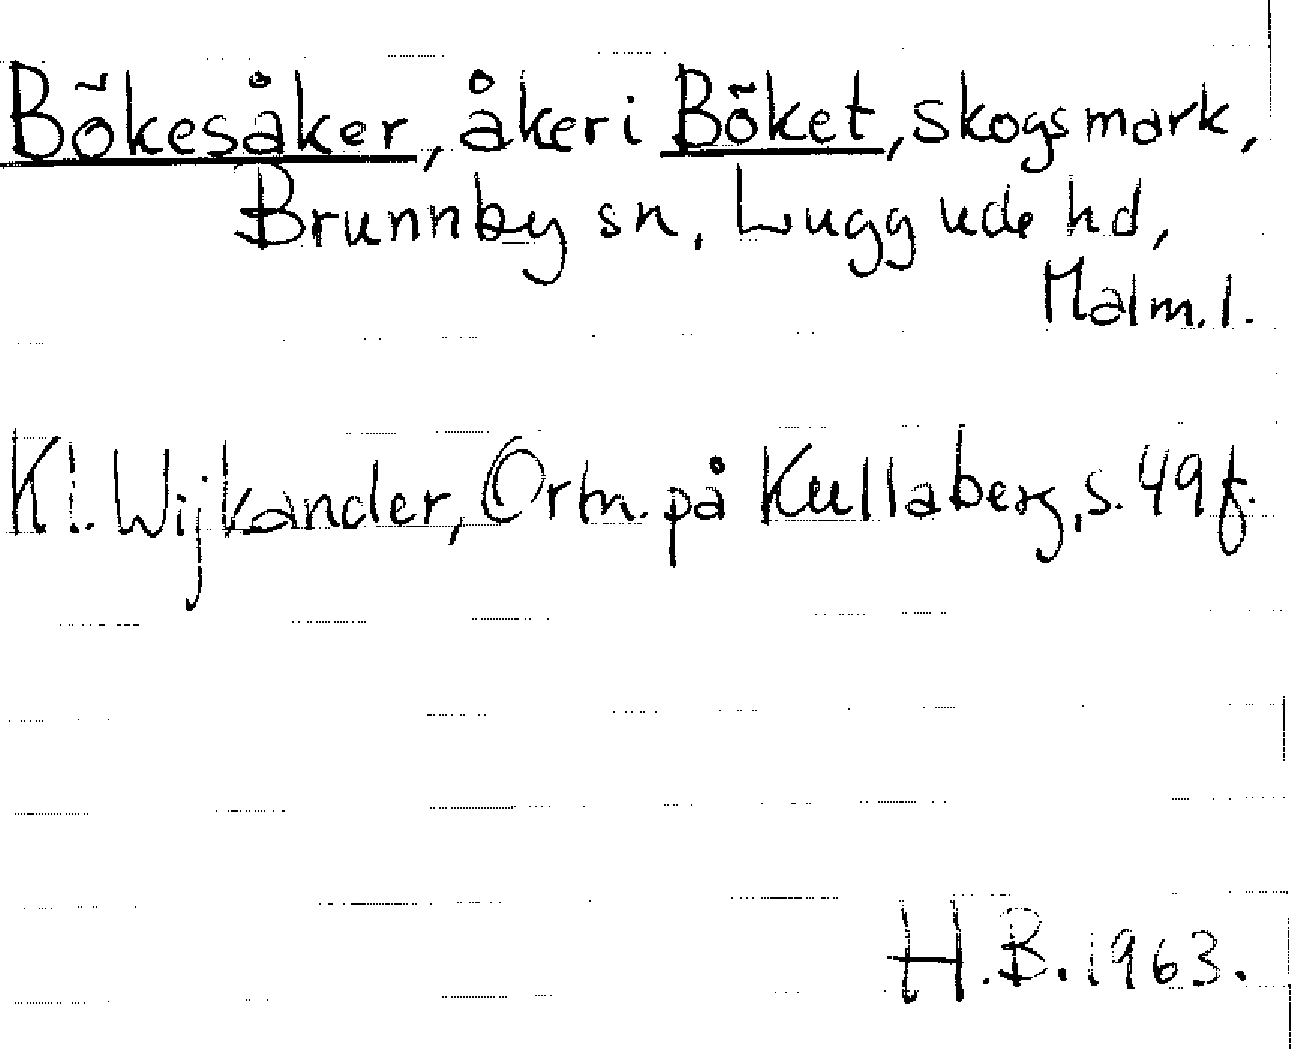 Bökesåker, åker i Böket, skogsmark,
Brunnby sn, Luggude hd,
Malm. l.
Kl. Wijkander, Ortn. på Kullaberg, s. 49 f.
H.B. 1963.